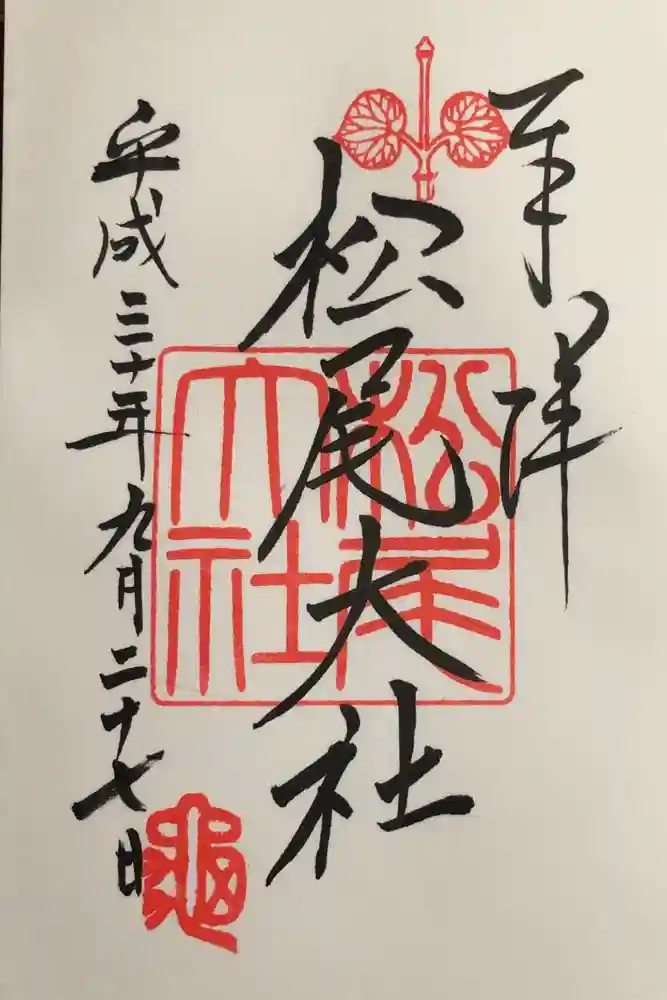 奉拝
松尾大社
平成三十年九月二十七日
松尾大社
亀